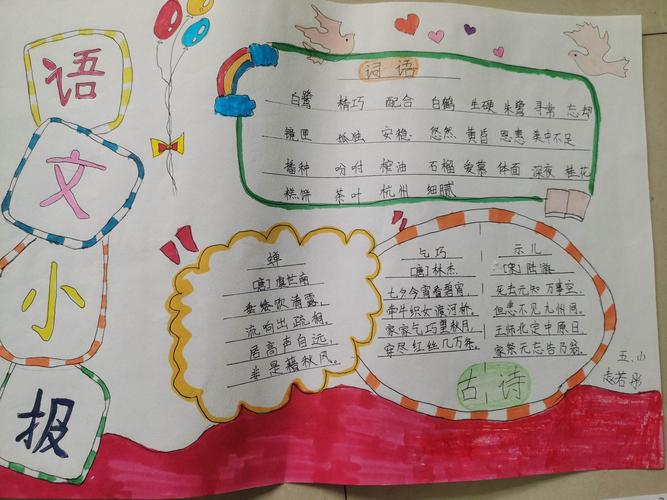 语
文
小
报
词语
白鹭 精巧 配合 白鹤 生硬 朱鹭 寻常 忘却
镜匣 孤独 安稳 悠然 黄昏 恩惠 美中不足
播种 吩咐 榨油 石榴 爱慕 体面 深夜 桂花
糕饼 茶叶 杭州 细腻
蝉
[唐]虞世南
垂緌饮清露,
流响出疏桐。
居高声自远,
非是藉秋风。
乞巧
[唐]林杰
七夕今宵看碧霄
牵牛织女渡河桥,
家家乞巧望秋月,
穿尽红丝几万条。
示儿
[宋]陆游
死去元知万事空,
但悲不见九州同。
王师北定中原日,
家祭无忘告乃翁。
古诗
五、小